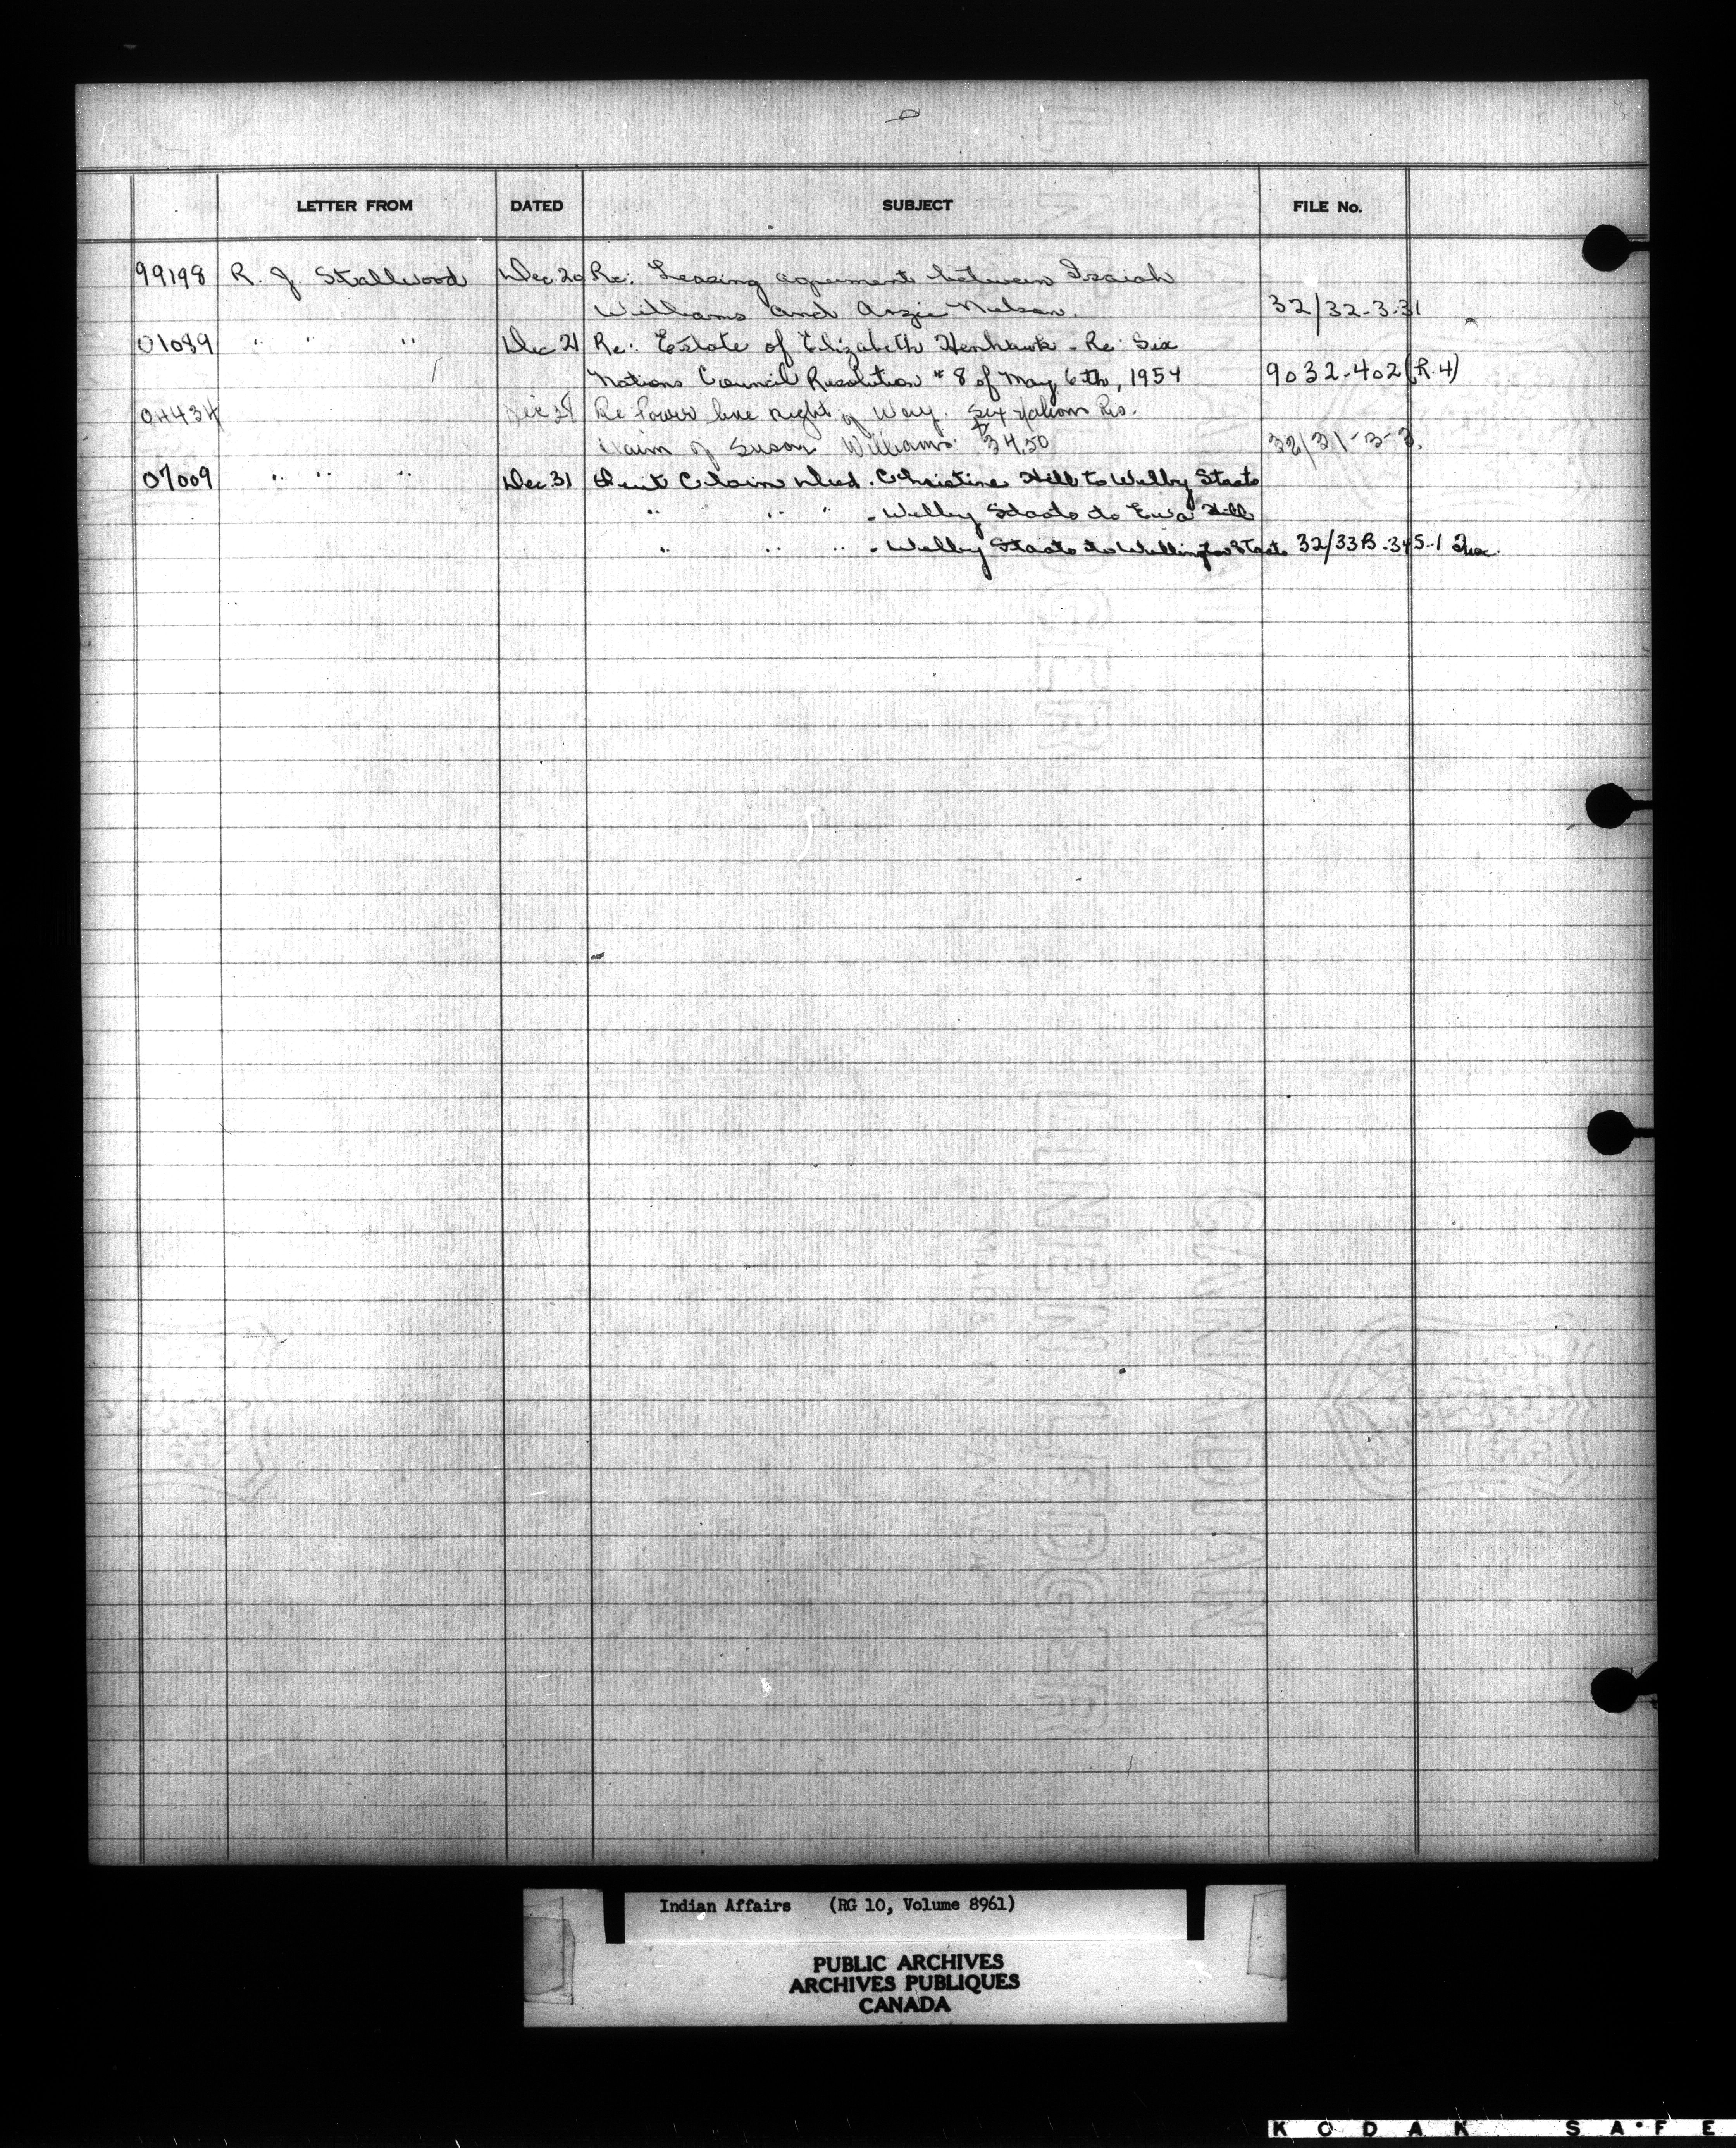 LETTER FROM DATED SUBJECT FILE No.
99198 R. J. Stallwood Dec. 20 Re: Leasing agreement between Isaiah
Williams and Angie Nelson. 32/32-3-31
01089 " " " Dec 21 Re: Estate of Elizabeth Henhawk - Re: Six
Nations Council Resolution #8 of May 6th, 1954 9032-402 (R.4)
04434 Dec Re Power line right of Way. Six Nations Res.
Claim of Susan Williams $34.50 32/31-3-3.
07009 " " " Dec. 31 Quit Claim Deed. Christine Hill to Welby Staats
" " " - Welby Staats to Eva Hill
" " " - Welby Staats to Wellington Staats 32/33B-345-1
Indian Affairs (RG 10, Volume 8961)
PUBLIC ARCHIVES
ARCHIVES PUBLIQUES
CANADA
KODAK SAFE